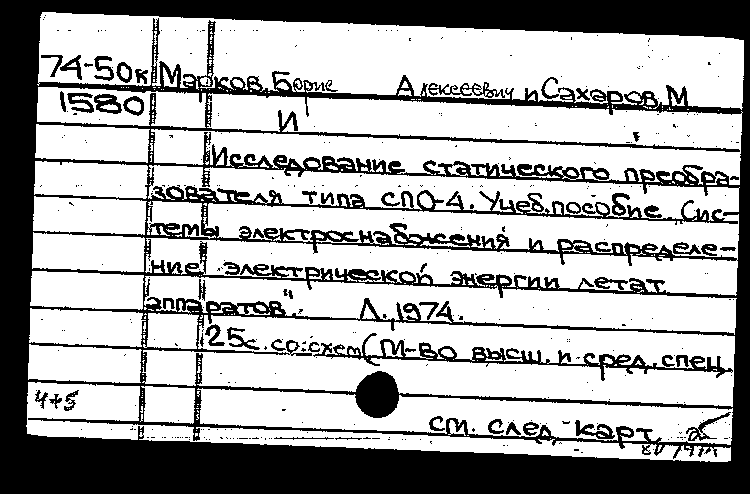 74-50к Марков, Борис Алексеевич и Сахаров, М
1580 И
Исследование статического преобра-
зователя типа СПО-4. Учеб. пособие „Сис-
темы электроснабжения и распределе-
ние электрической энергии летат.
аппаратов". Л., 1974.
25с. со схем (М-во высш. и сред. спец.
4+5
см. след. карт.